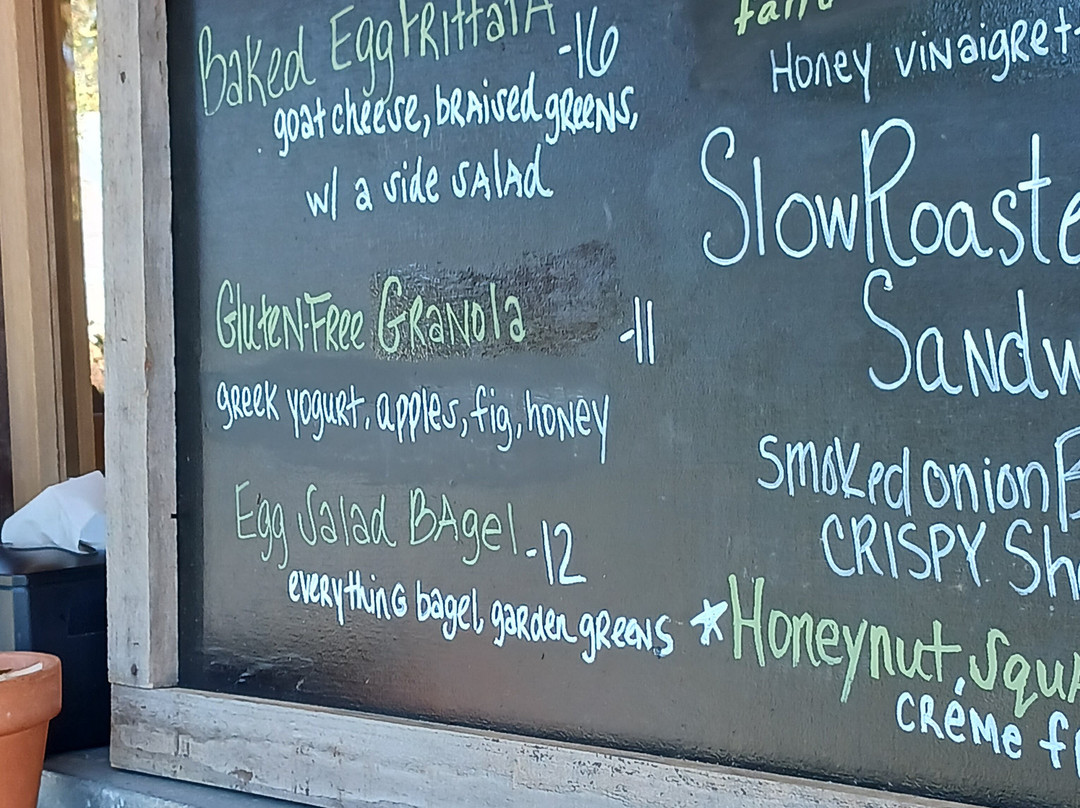 Baked Egg Frittata -16
goat cheese, braised greens,
w/ a side salad
Gluten-Free Granola -11
greek yogurt, apples, fig, honey
Egg Salad Bagel -12
everything bagel, garden greens
Honey vinaigret
Slow Roaste
Sandw
smoked onion B
CRISPY Sh
*Honeynut Squ
créme f